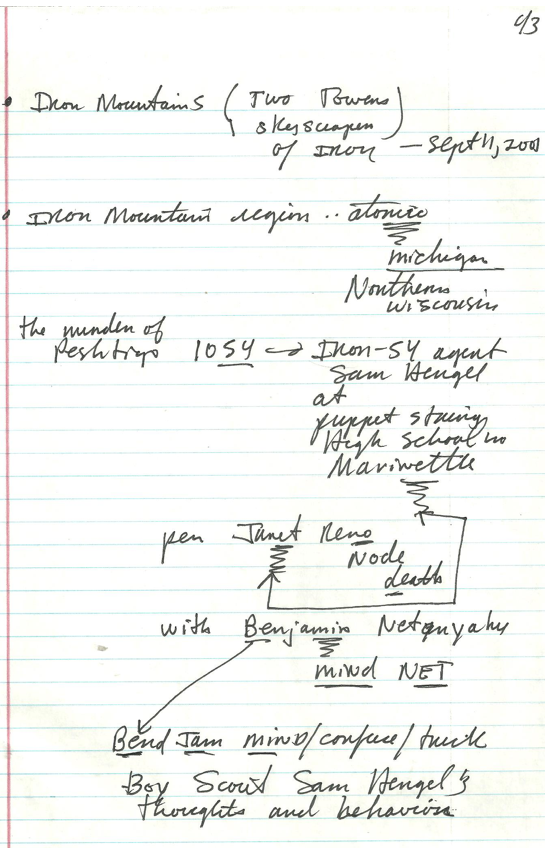 4/3
• Iron Mountains (Two Towers
skyscraper
of Iron) – Sept 11, 2001
• Iron Mountain region .. atomic
michigan
Northern
wisconsin
the murder of
Peshtigo 1054 → Iron-54 agent
Sam Hengel
at
puppet string
High School in
Mariwette
per Janet Reno
Node
death
with Benjamin Netanyahu
mind NET
Bend Jam mind/confuse/trick
Boy Scout Sam Hengel's
thoughts and behavior